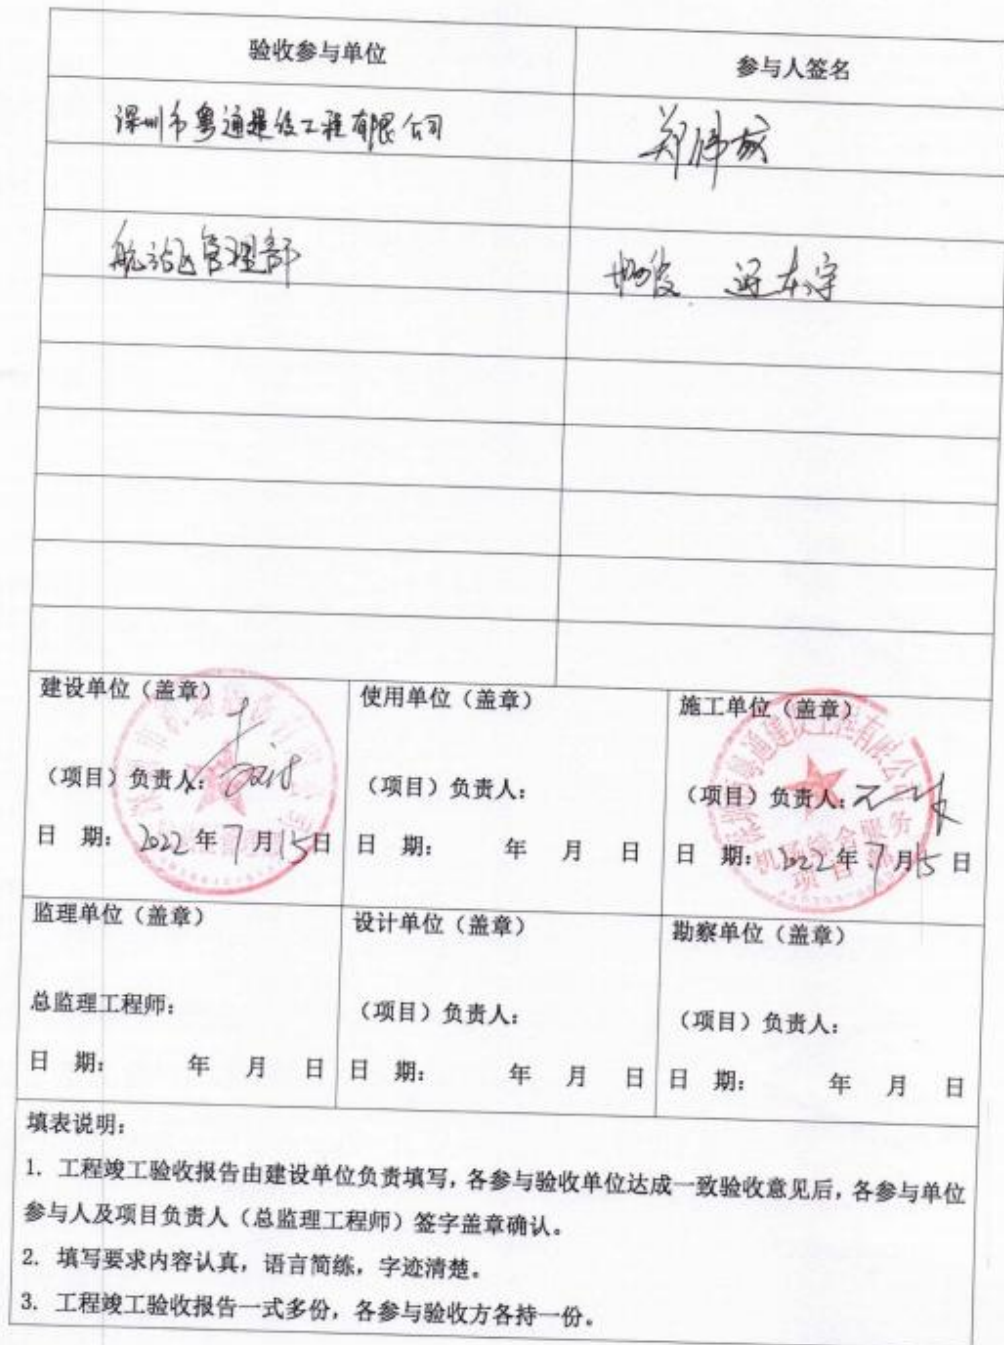 验收参与单位
参与人签名
深圳市粤通建设工程有限公司
郑伟城
航站区管理部
建设单位（盖章）
（项目）负责人：
日 期： 2022 年 7 月 15 日
使用单位（盖章）
（项目）负责人：
日 期： 年 月 日
施工单位（盖章）
（项目）负责人：
日 期： 2022 年 7 月 15 日
深圳市粤通建设工程有限公司
机场综合服务
项目部
监理单位（盖章）
总监理工程师：
日 期： 年 月 日
设计单位（盖章）
（项目）负责人：
日 期： 年 月 日
勘察单位（盖章）
（项目）负责人：
日 期： 年 月 日
填表说明：
1. 工程竣工验收报告由建设单位负责填写，各参与验收单位达成一致验收意见后，各参与单位
参与人及项目负责人（总监理工程师）签字盖章确认。
2. 填写要求内容认真，语言简练，字迹清楚。
3. 工程竣工验收报告一式多份，各参与验收方各持一份。